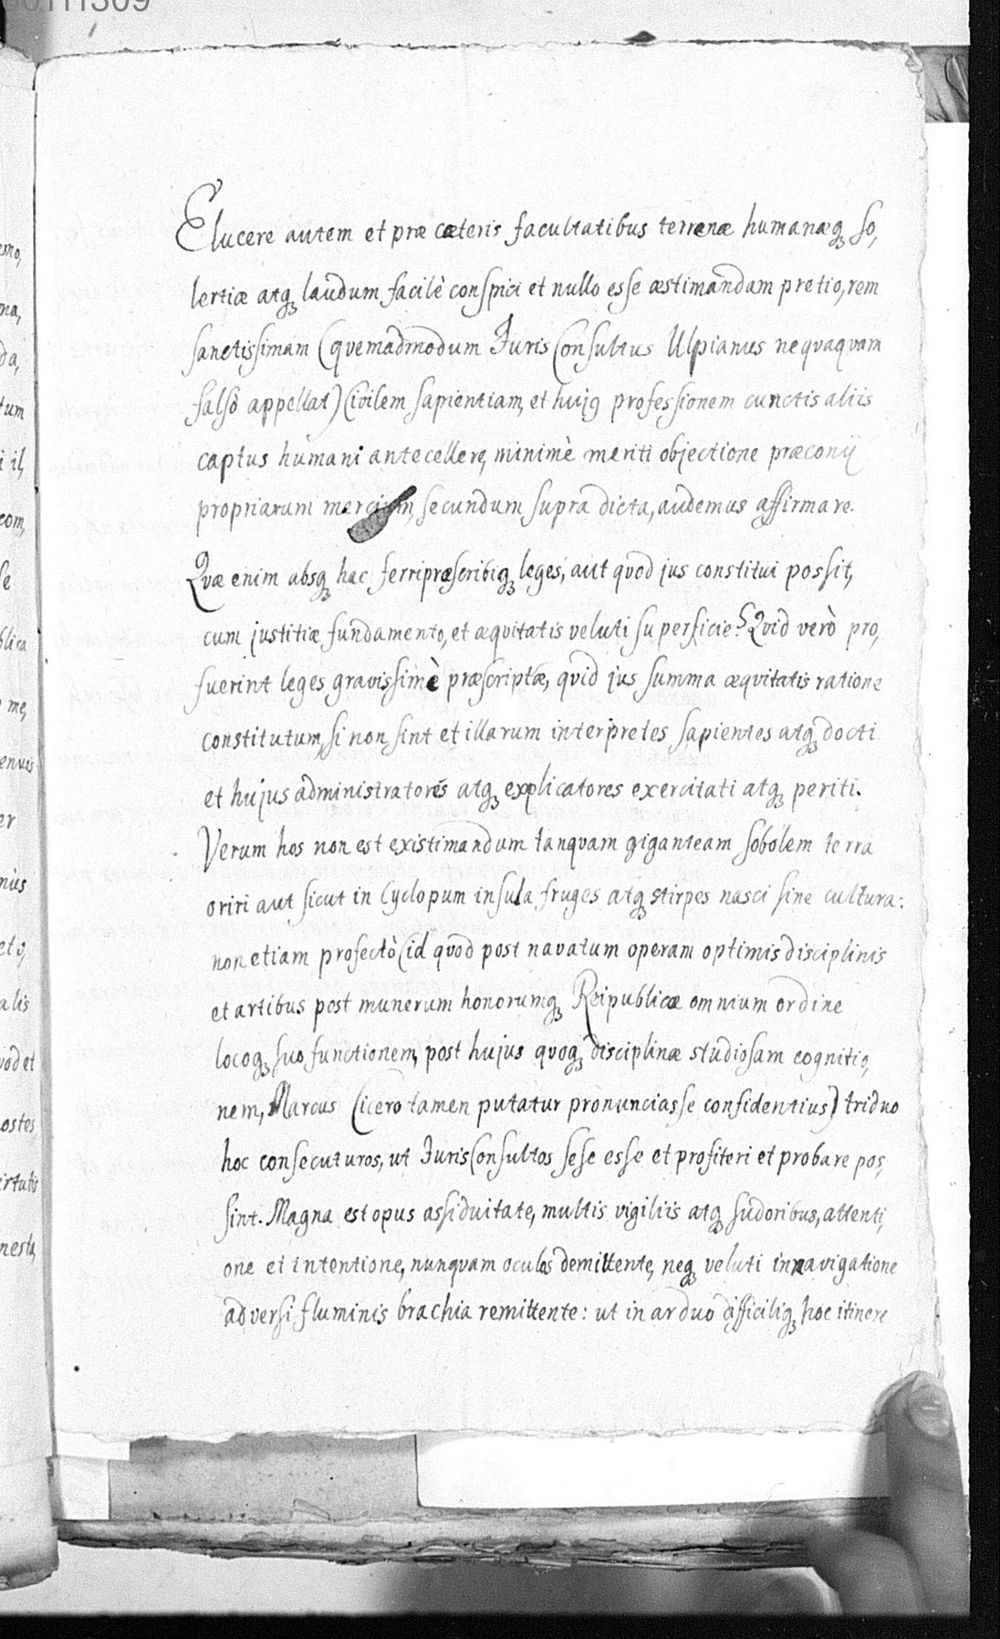 Elucere autem et præ cæteris facultatibus terrenæ humanæq; so,
lertiæ atq; laudum facilè conspici et nullo esse æstimandam pretio, rem
sanctissimam (quemadmodum Juris Consultus Ulpianus nequaquam
falsò appellat) Civilem sapientiam, et hujq professionem cunctis aliis
captus humani antecellere, minimè meriti objectione præconij
propriarum mercium, secundum supra dicta, audemus affirmare.
Quæ enim absq; hac ferri præscribiq; leges, aut quod jus constitui possit,
cum justitiæ fundamento, et æquitatis veluti superficie? Quid verò pro,
fuerint leges gravissimè præscriptæ, quid jus summa æquitatis ratione
constitutum, si non sint et illarum interpretes sapientes atq; docti
et hujus administratores atq; explicatores exercitati atq; periti.
Verum hos non est existimandum tanquam giganteam sobolem terra
oriri aut sicut in Cyclopum insula fruges atq; stirpes nasci sine cultura:
non etiam profectò (id quod post navatum operam optimis disciplinis
et artibus post munerum honorumq; Reipublicæ omnium ordine
locoq; suo functionem, post hujus quoq; disciplinæ studiosam cognitio,
nem, Marcus Cicero tamen putatur pronunciasse confidentius) triduo
hoc consecuturos, ut JurisConsultos sese esse et profiteri et probare pos,
sint. Magna est opus assiduitate, multis vigiliis atq; sudoribus, attenti,
one et intentione, nunquam oculos demittente, neq; veluti in navigatione
adversi fluminis brachia remittente: ut in arduo difficiliq; hoc itinere